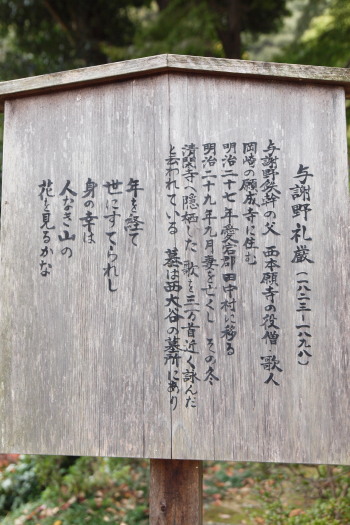 与謝野礼厳（一八二三−一八九八）
与謝野鉄幹の父 西本願寺の役僧 歌人
岡崎の願成寺に住む
明治二十七年愛宕郡田中村に移る
明治二十九年九月妻を亡くし その冬
清閑寺へ隠栖した 歌を三万首近く詠んだ
と云われている 墓は西大谷の墓所にあり
年を経て
世にすてられし
身の幸は
人なき山の
花を見るかな